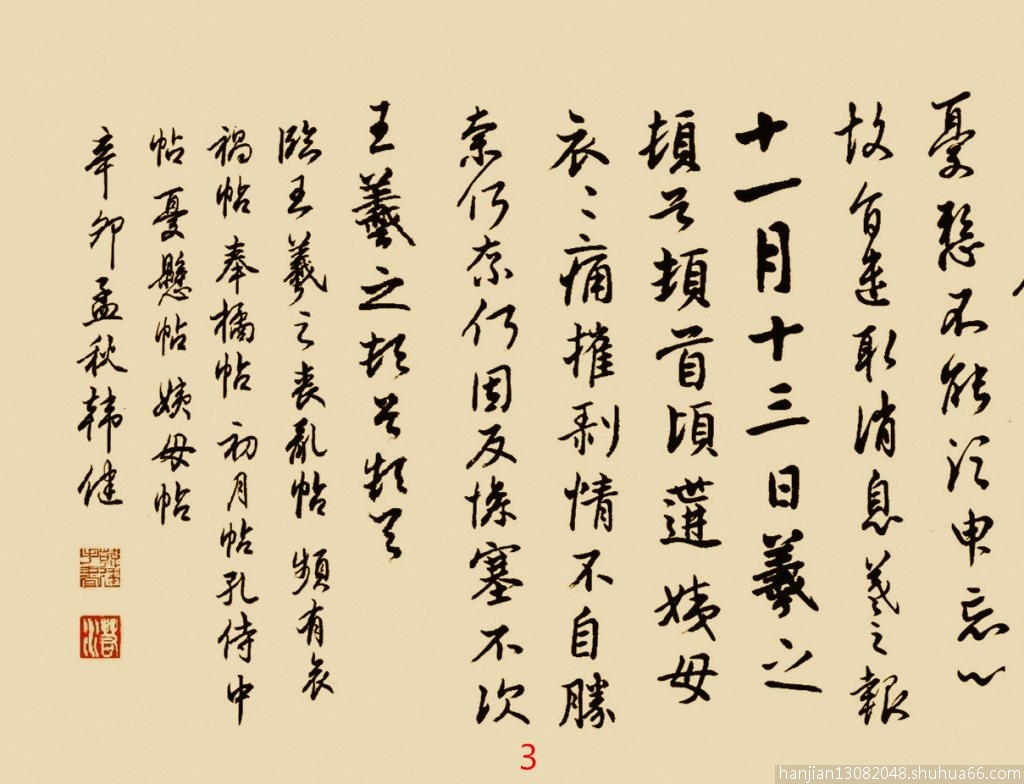 憂懸不能須臾忘心
故旬遣取消息羲之報
十一月十三日羲之
頓首頓首頃遘姨母
哀〻痛摧剥情不自勝
奈何奈何因反慘塞不次
王羲之頓首頓首
臨王羲之喪亂帖 頻有哀
禍帖 奉橘帖 初月帖 孔侍中
帖 憂懸帖 姨母帖
辛卯孟秋韓健
3
hanjian13082048.shuhua66.com